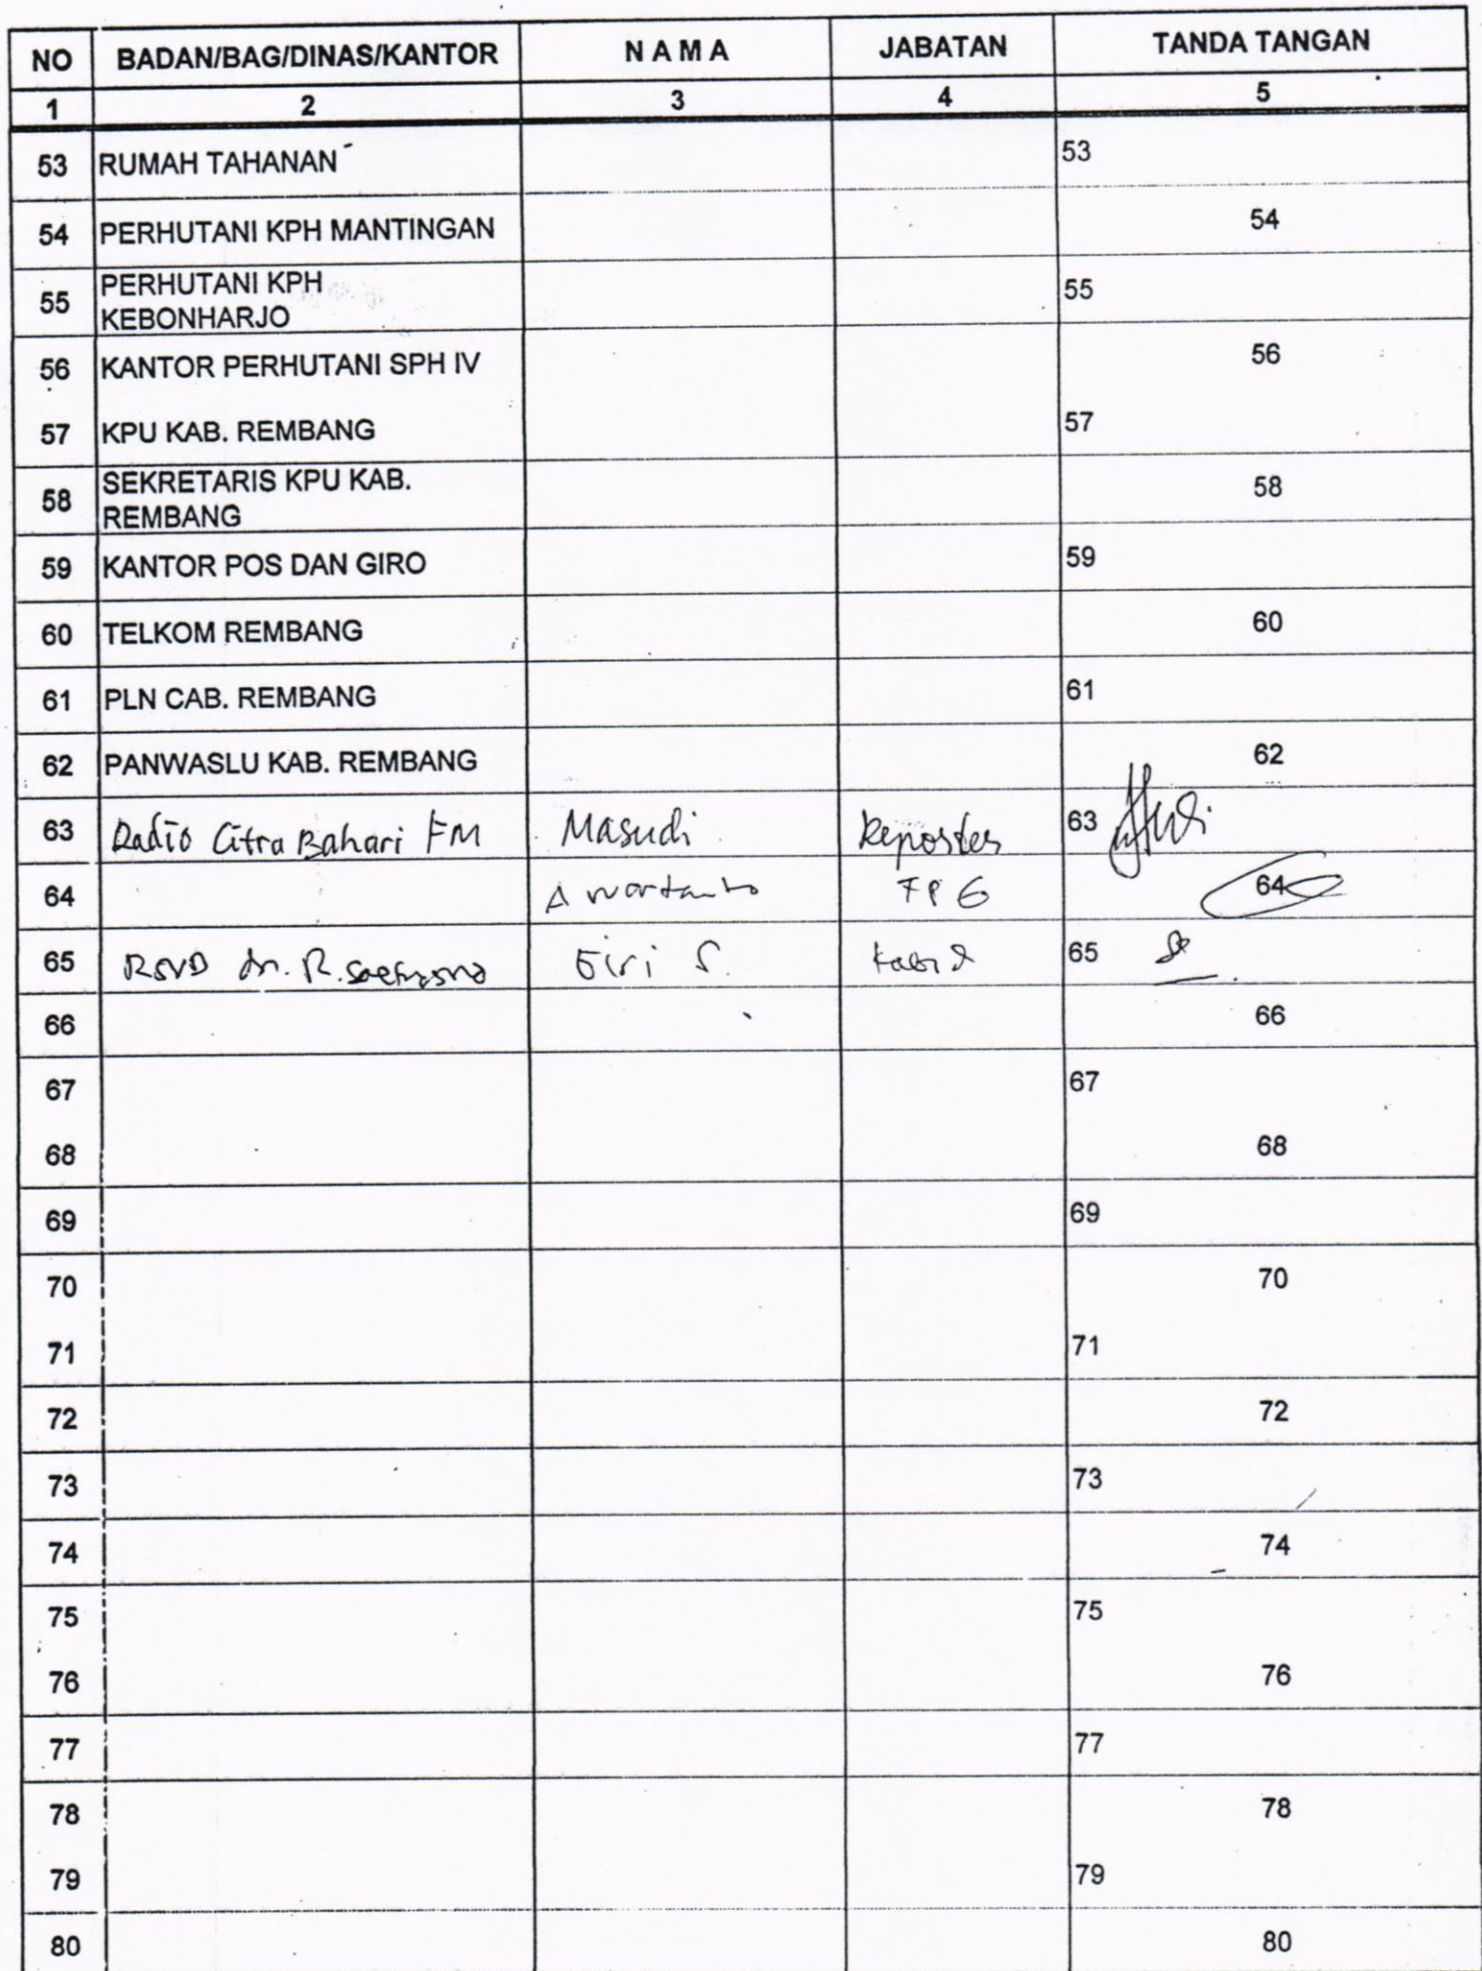 NO BADAN/BAG/DINAS/KANTOR N A M A JABATAN TANDA TANGAN
1 2 3 4 5
53 RUMAH TAHANAN 53
54 PERHUTANI KPH MANTINGAN 54
55 PERHUTANI KPH KEBONHARJO 55
56 KANTOR PERHUTANI SPH IV 56
57 KPU KAB. REMBANG 57
58 SEKRETARIS KPU KAB. REMBANG 58
59 KANTOR POS DAN GIRO 59
60 TELKOM REMBANG 60
61 PLN CAB. REMBANG 61
62 PANWASLU KAB. REMBANG 62
63 Radio Citra Bahari FM Masudi Reporter 63
64 A 64
65 RSUD dr. R. S. 65
66 66
67 67
68 68
69 69
70 70
71 71
72 72
73 73
74 74
75 75
76 76
77 77
78 78
79 79
80 80